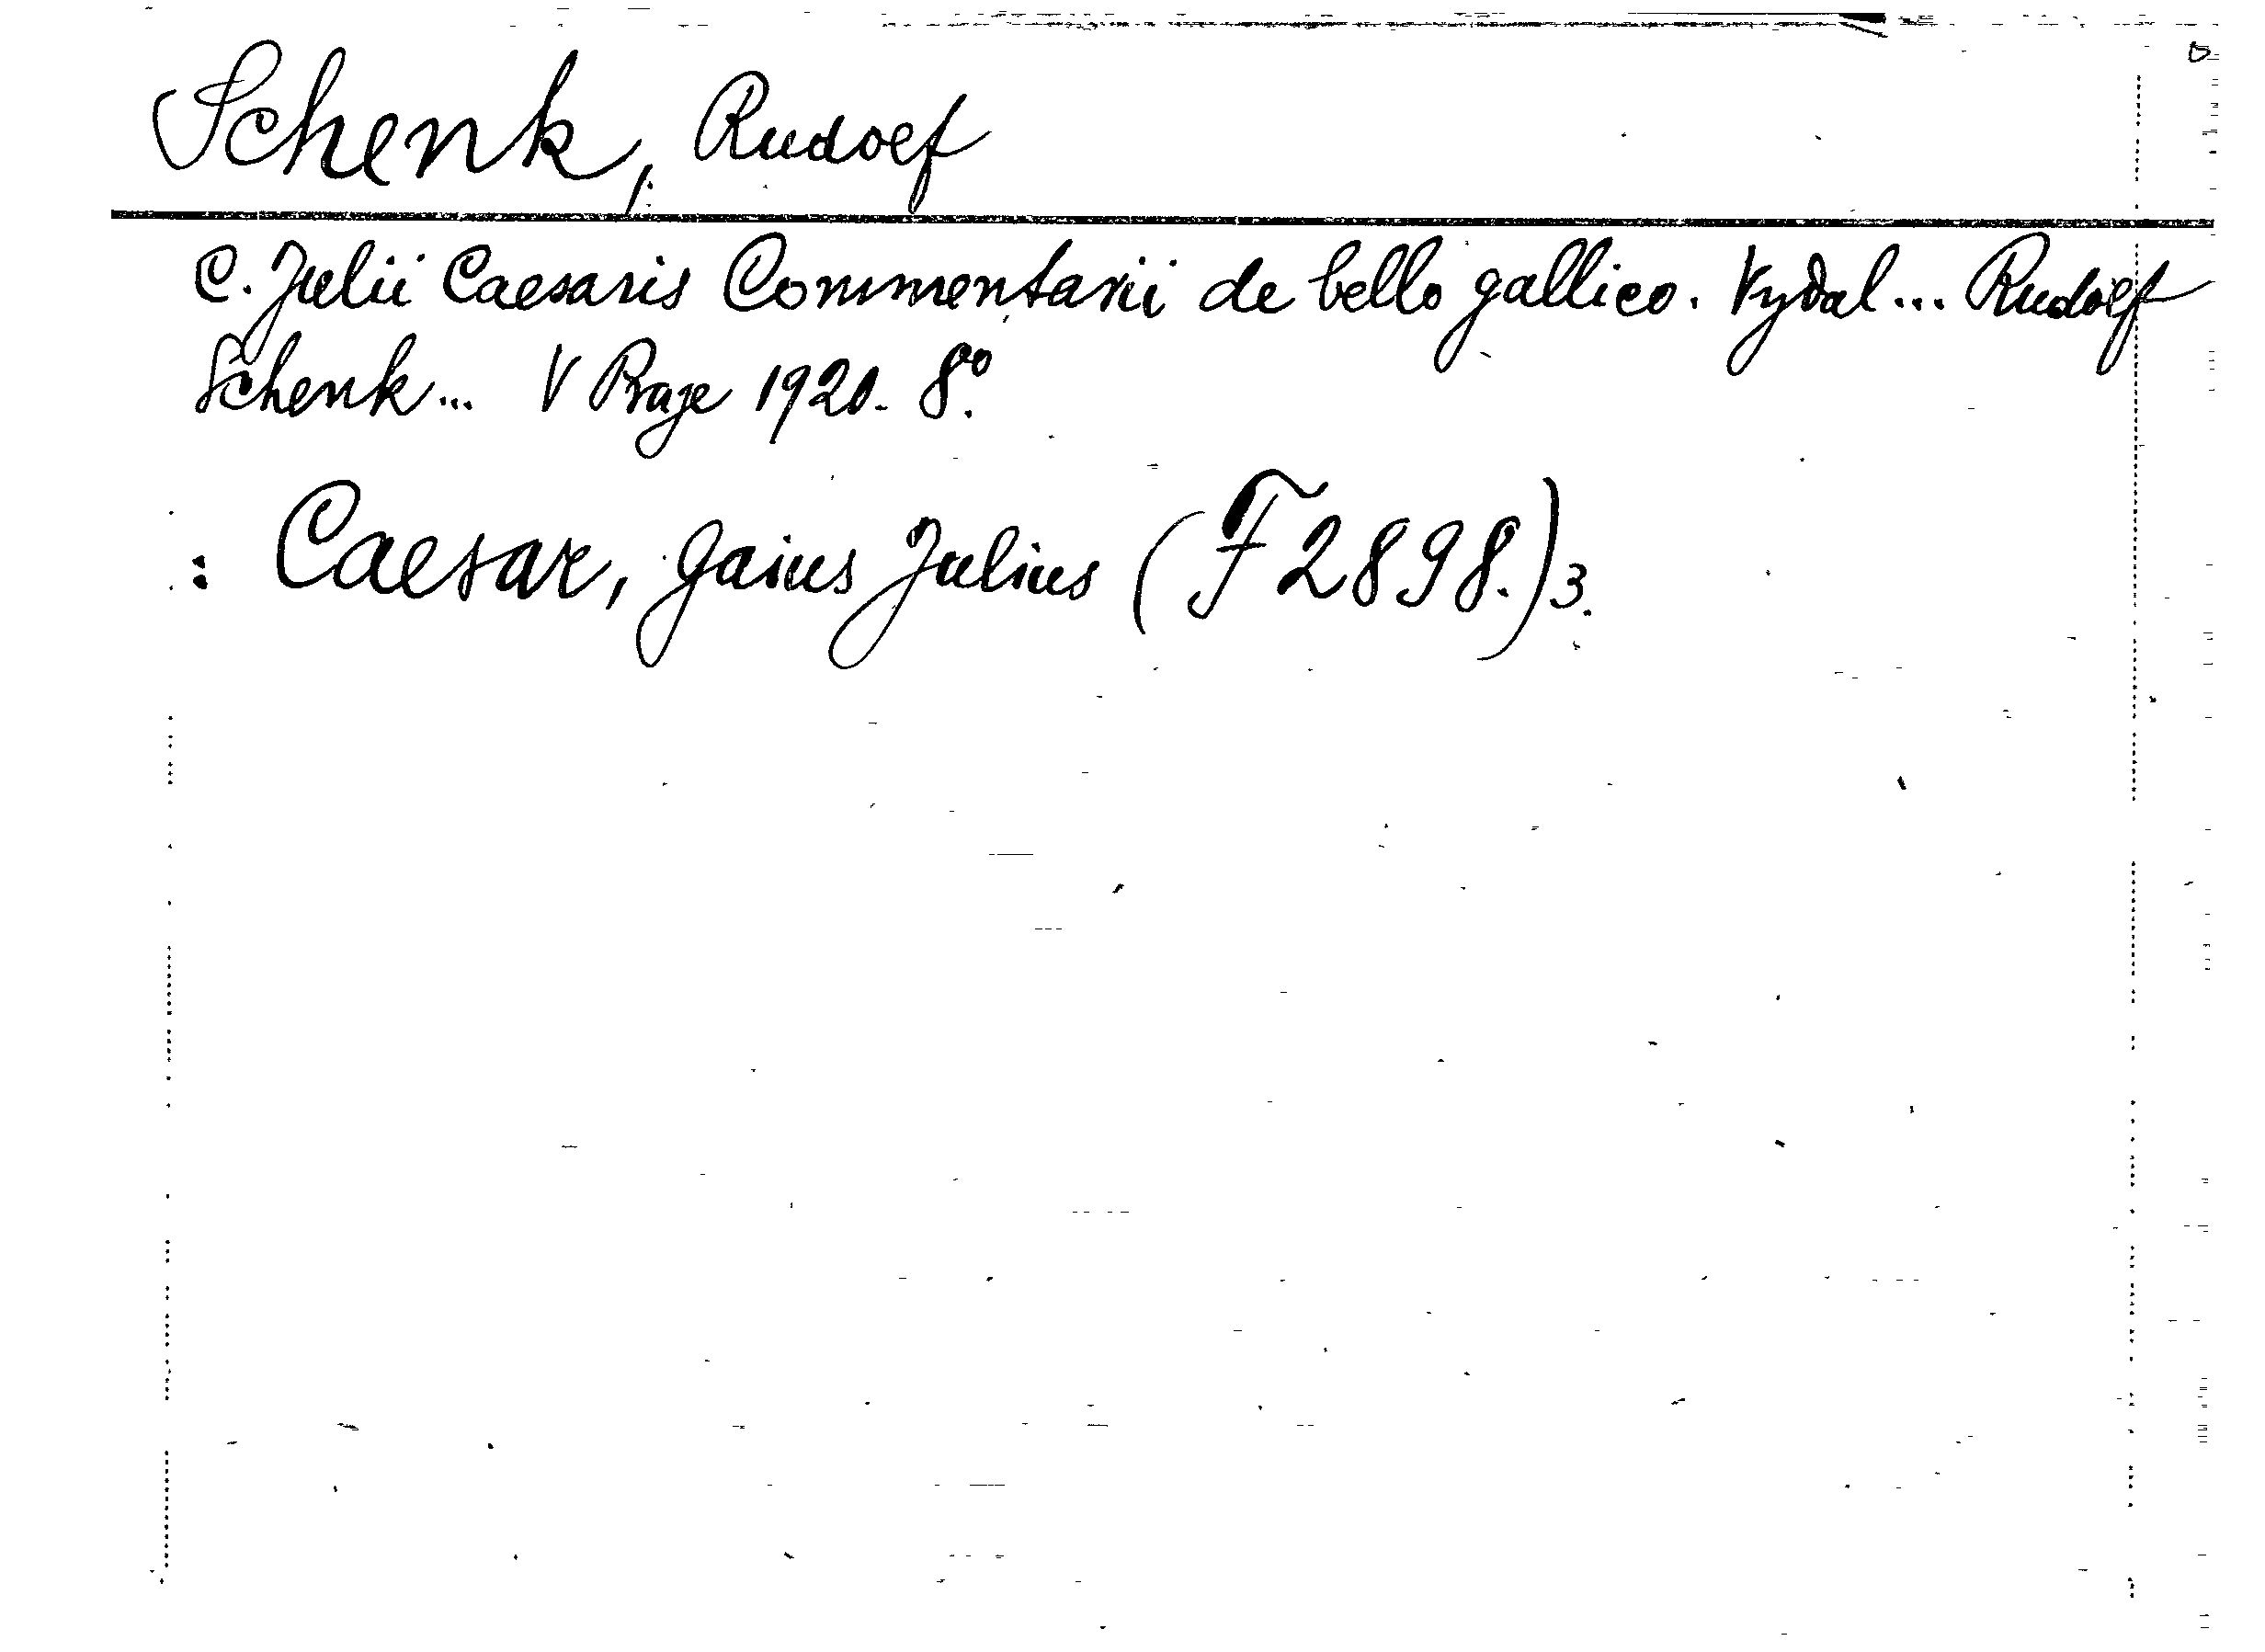 Schenk, Rudolf
C. Julii Caesaris Commentarii de bello gallico. Vydal... Rudolf
Schenk... V Praze 1920. 8°.
: Caesar, Gaius Julius (F 2898.) 3.